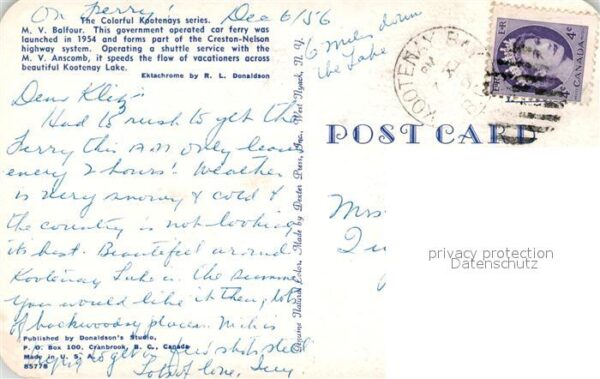 On Ferry! Dec 6/56
The Colorful Kootenays series.
M. V. Balfour. This government operated car ferry was
launched in 1954 and forms part of the Creston-Nelson
highway system. Operating a shuttle service with the
M. V. Anscomb, it speeds the flow of vacationers across
beautiful Kootenay Lake.
Ektachrome by R. L. Donaldson
6 miles down
the Lake
Dear
Had to rush to get the
Ferry this AM only leaves
every 2 hours! Weather
is very snowy & cold &
the country is not looking
its best. Beautiful around
Kootenay Lake in the summer
You would like it then, lots
of backwoodsy places.
Published by Donaldson's Studio,
P. O. Box 100, Cranbrook, B. C., Canada
Made in U. S. A.
85778
to get
Lots of love,
Dexone Natural Color, Made by Dexter Press, Inc., West Nyack, N. Y.
KOOTENAY BAY
PM
4¢
CANADA
POST CARD
Mrs
privacy protection
Datenschutz